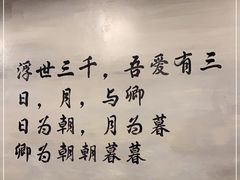 浮世三千，吾爱有三
日，月，与卿
日为朝，月为暮
卿为朝朝暮暮